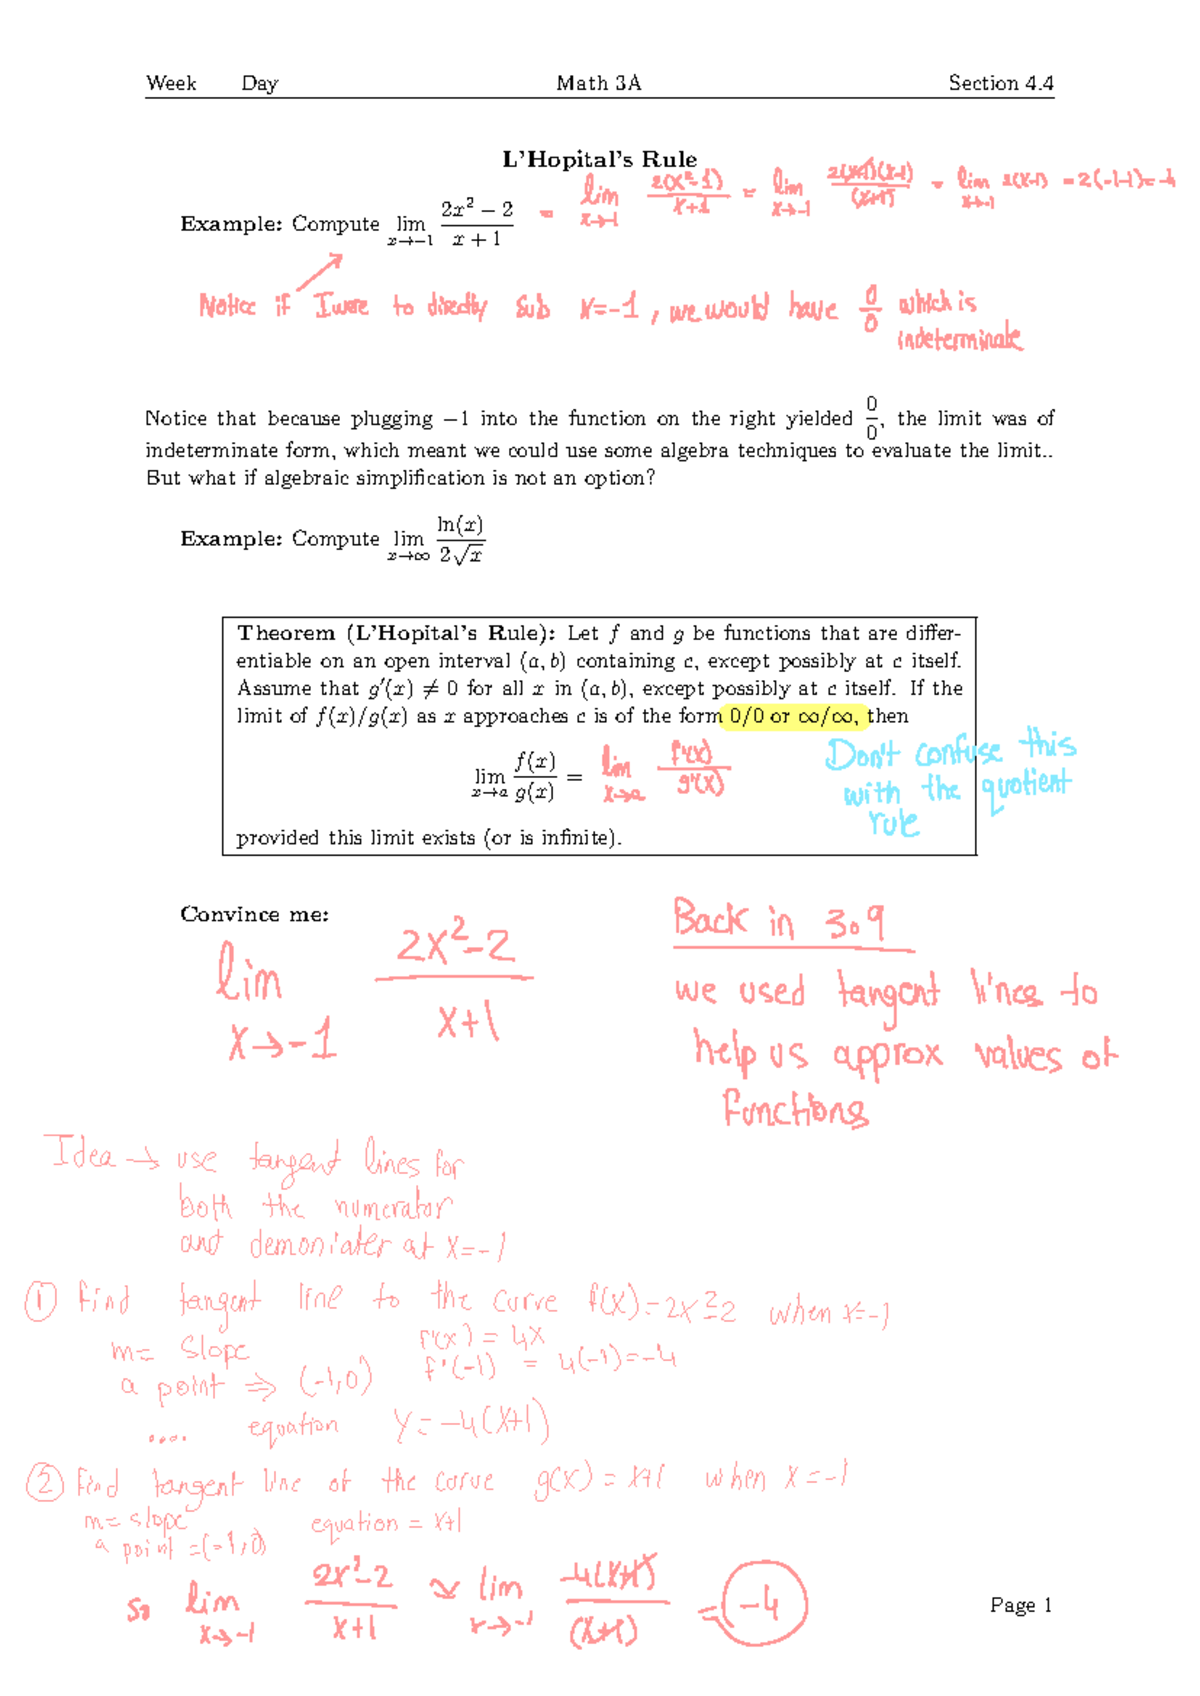 Week Day Math 3A Section 4.4
L'Hopital's Rule
Example: Compute lim x→−1 (2x² − 2)/(x + 1) = lim x→-1 2(x²-1)/(x+1) = lim x→-1 2(x+1)(x-1)/(x+1) = lim x→-1 2(x-1) = 2(-1-1)=-4
Notice if I were to directly sub x=-1, we would have 0/0 which is
indeterminate
Notice that because plugging −1 into the function on the right yielded 0/0, the limit was of
indeterminate form, which meant we could use some algebra techniques to evaluate the limit..
But what if algebraic simplification is not an option?
Example: Compute lim x→∞ ln(x)/(2√x)
Theorem (L'Hopital's Rule): Let f and g be functions that are differ-
entiable on an open interval (a, b) containing c, except possibly at c itself.
Assume that g′(x) ≠ 0 for all x in (a, b), except possibly at c itself. If the
limit of f(x)/g(x) as x approaches c is of the form 0/0 or ∞/∞, then
lim x→a f(x)/g(x) = lim x→a f'(x)/g'(x)
Don't confuse this
with the quotient
rule
provided this limit exists (or is infinite).
Convince me:
lim x→-1 (2x²-2)/(x+1)
Back in 3.9
we used tangent lines to
help us approx values of
functions
Idea → use tangent lines for
both the numerator
and demoniater at x=-1
① Find tangent line to the curve f(x)=2x²-2 when x=-1
m= slope f'(x) = 4x
a point ⇒ (-1,0) f'(-1) = 4(-1)=-4
.... equation y=-4(x+1)
② Find tangent line of the curve g(x) = x+1 when x=-1
m= slope equation = x+1
a point =(-1,0)
so lim x→-1 (2x²-2)/(x+1) ≈ lim x→-1 -4(x+1)/(x+1) = -4
Page 1